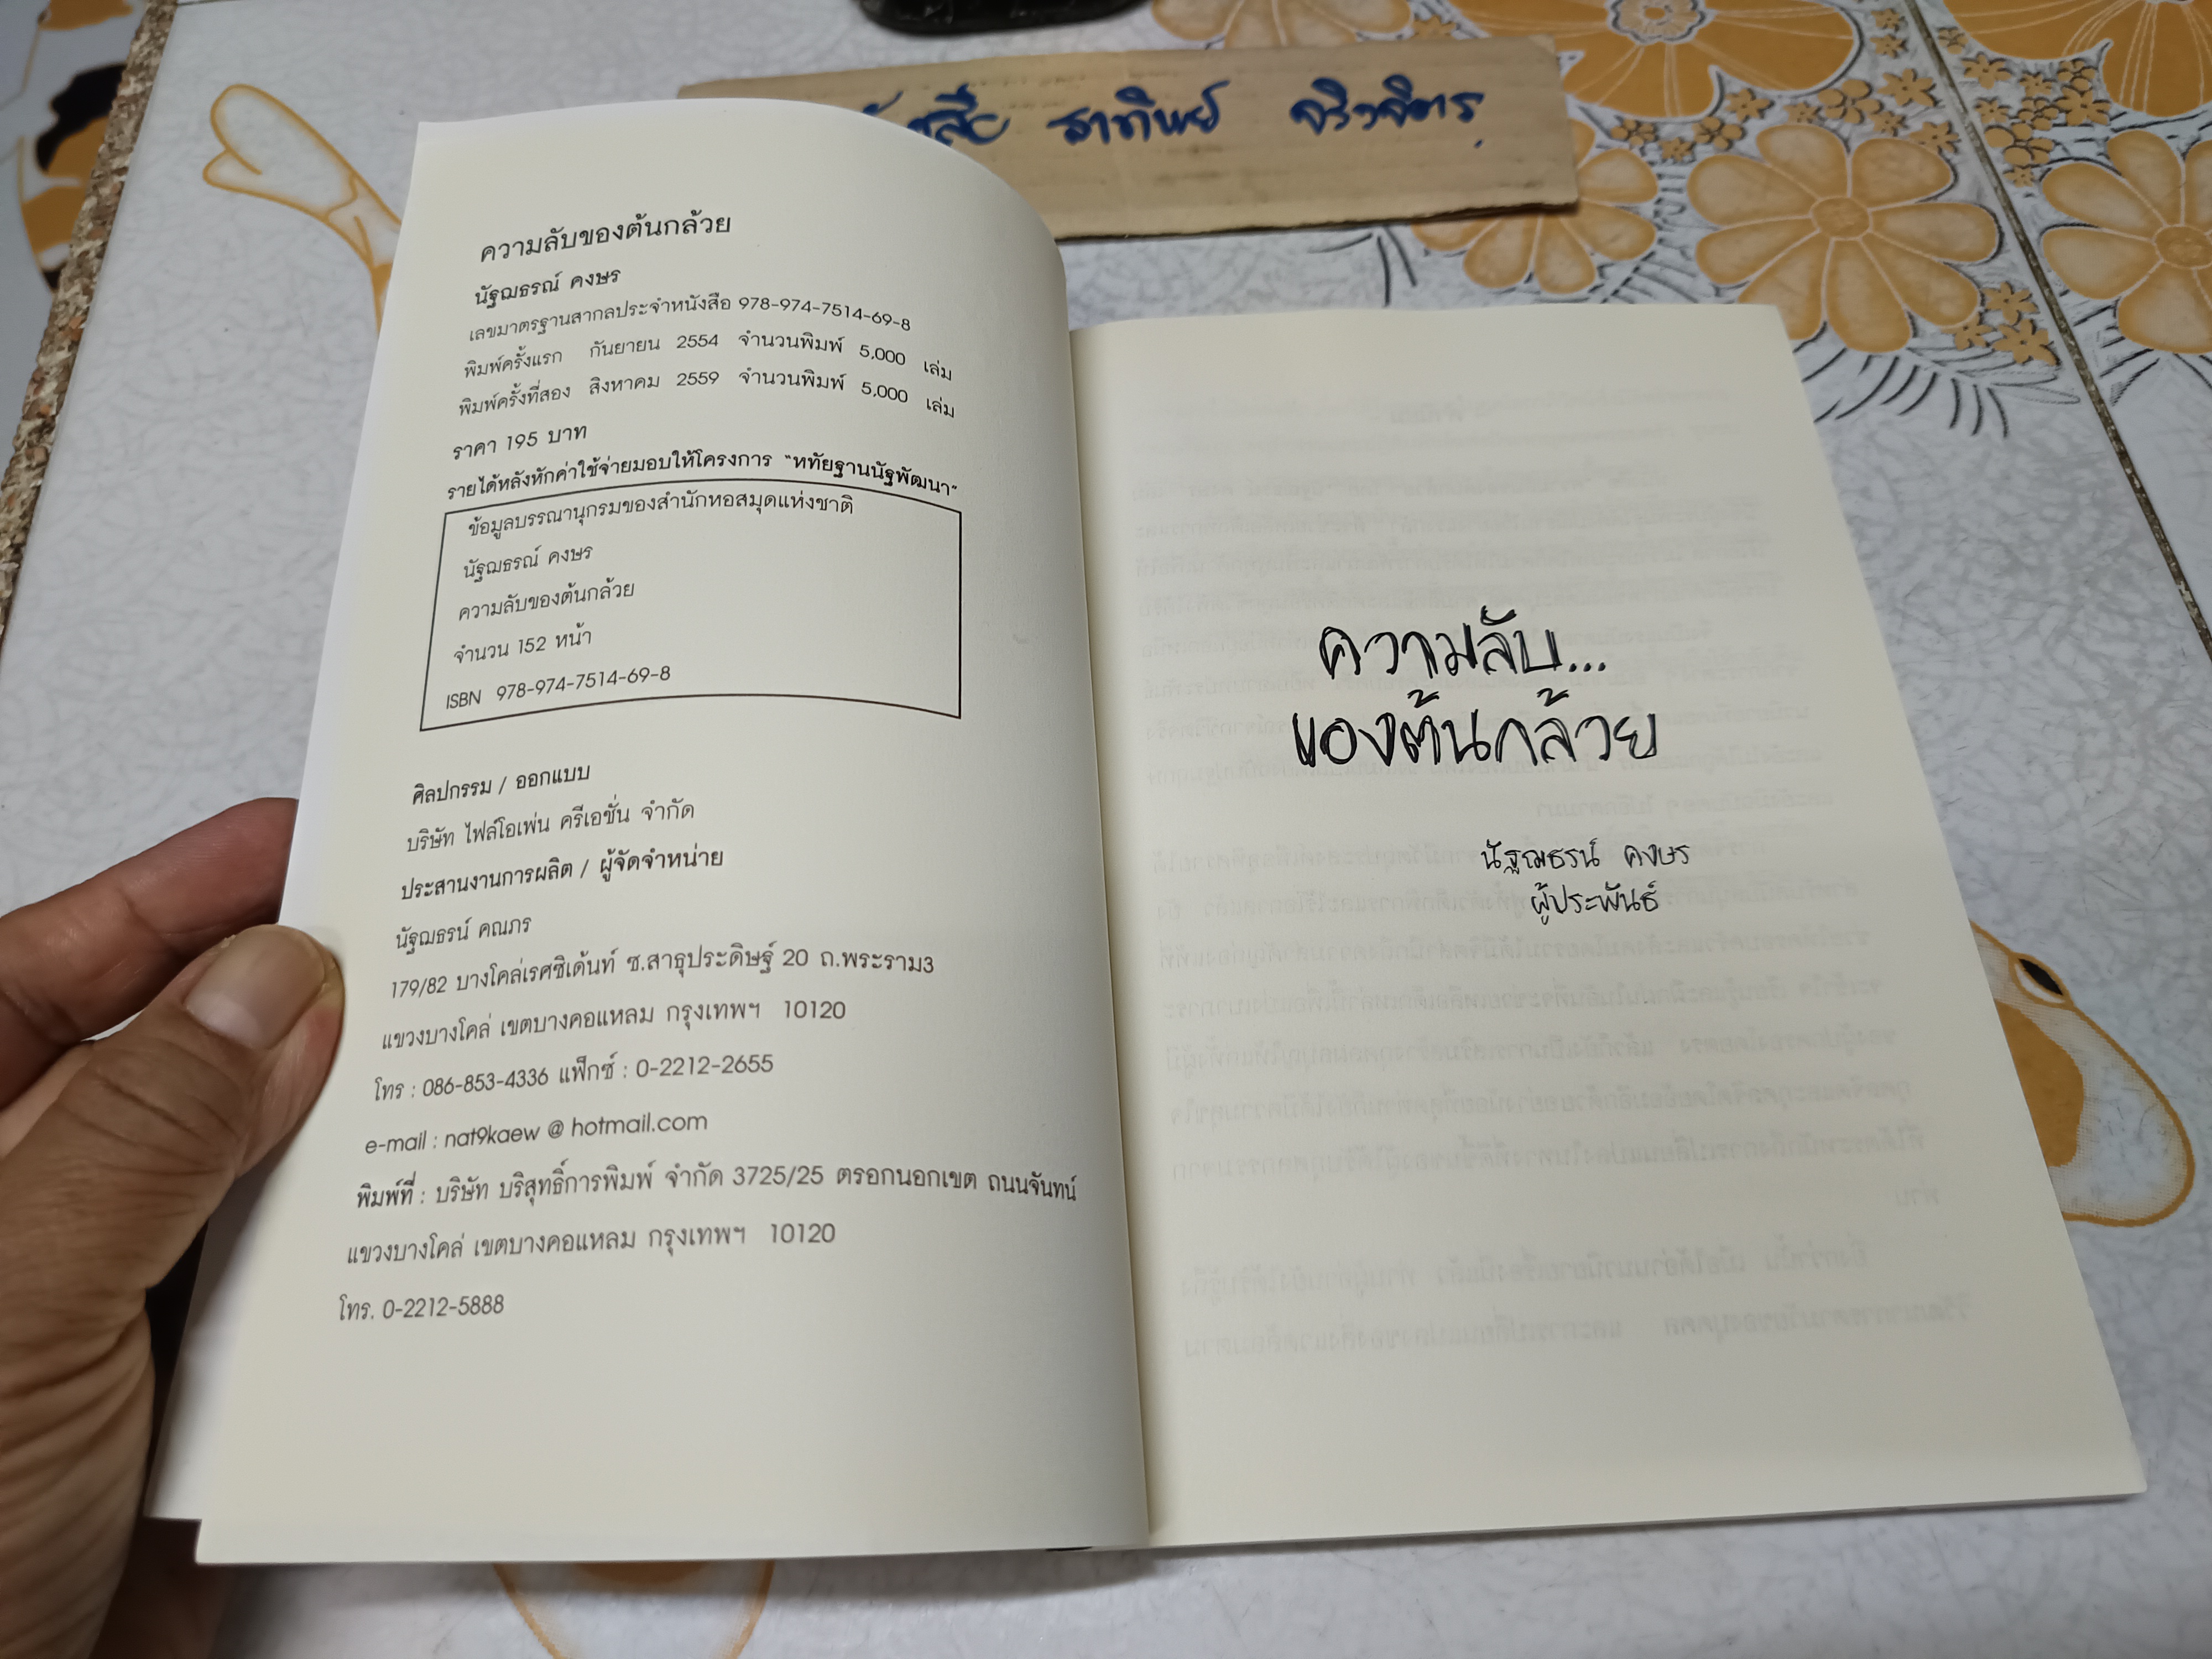 ธาทิพย์
ความลับของต้นกล้วย
นัฐฌธรณ์ คงษร
เลขมาตรฐานสากลประจำหนังสือ 978-974-7514-69-8
พิมพ์ครั้งแรก กันยายน 2554 จำนวนพิมพ์ 5,000 เล่ม
พิมพ์ครั้งที่สอง สิงหาคม 2559 จำนวนพิมพ์ 5,000 เล่ม
ราคา 195 บาท
รายได้หลังหักค่าใช้จ่ายมอบให้โครงการ "หทัยฐานนัฐพัฒนา"
ข้อมูลบรรณานุกรมของสำนักหอสมุดแห่งชาติ
นัฐฌธรณ์ คงษร
ความลับของต้นกล้วย
จำนวน 152 หน้า
ISBN 978-974-7514-69-8
ศิลปกรรม / ออกแบบ
บริษัท ไฟล์โอเพ่น ครีเอชั่น จำกัด
ประสานงานการผลิต / ผู้จัดจำหน่าย
นัฐฌธรน์ คณภร
179/82 บางโคล่เรศซิเด้นท์ ซ.สาธุประดิษฐ์ 20 ถ.พระราม3
แขวงบางโคล่ เขตบางคอแหลม กรุงเทพฯ 10120
โทร : 086-853-4336 แฟ็กซ์ : 0-2212-2655
e-mail : nat9kaew @ hotmail.com
พิมพ์ที่ : บริษัท บริสุทธิ์การพิมพ์ จำกัด 3725/25 ตรอกนอกเขต ถนนจันทน์
แขวงบางโคล่ เขตบางคอแหลม กรุงเทพฯ 10120
โทร. 0-2212-5888
ความลับ...
ของต้นกล้วย
นัฐฌธรน์ คงษร
ผู้ประพันธ์